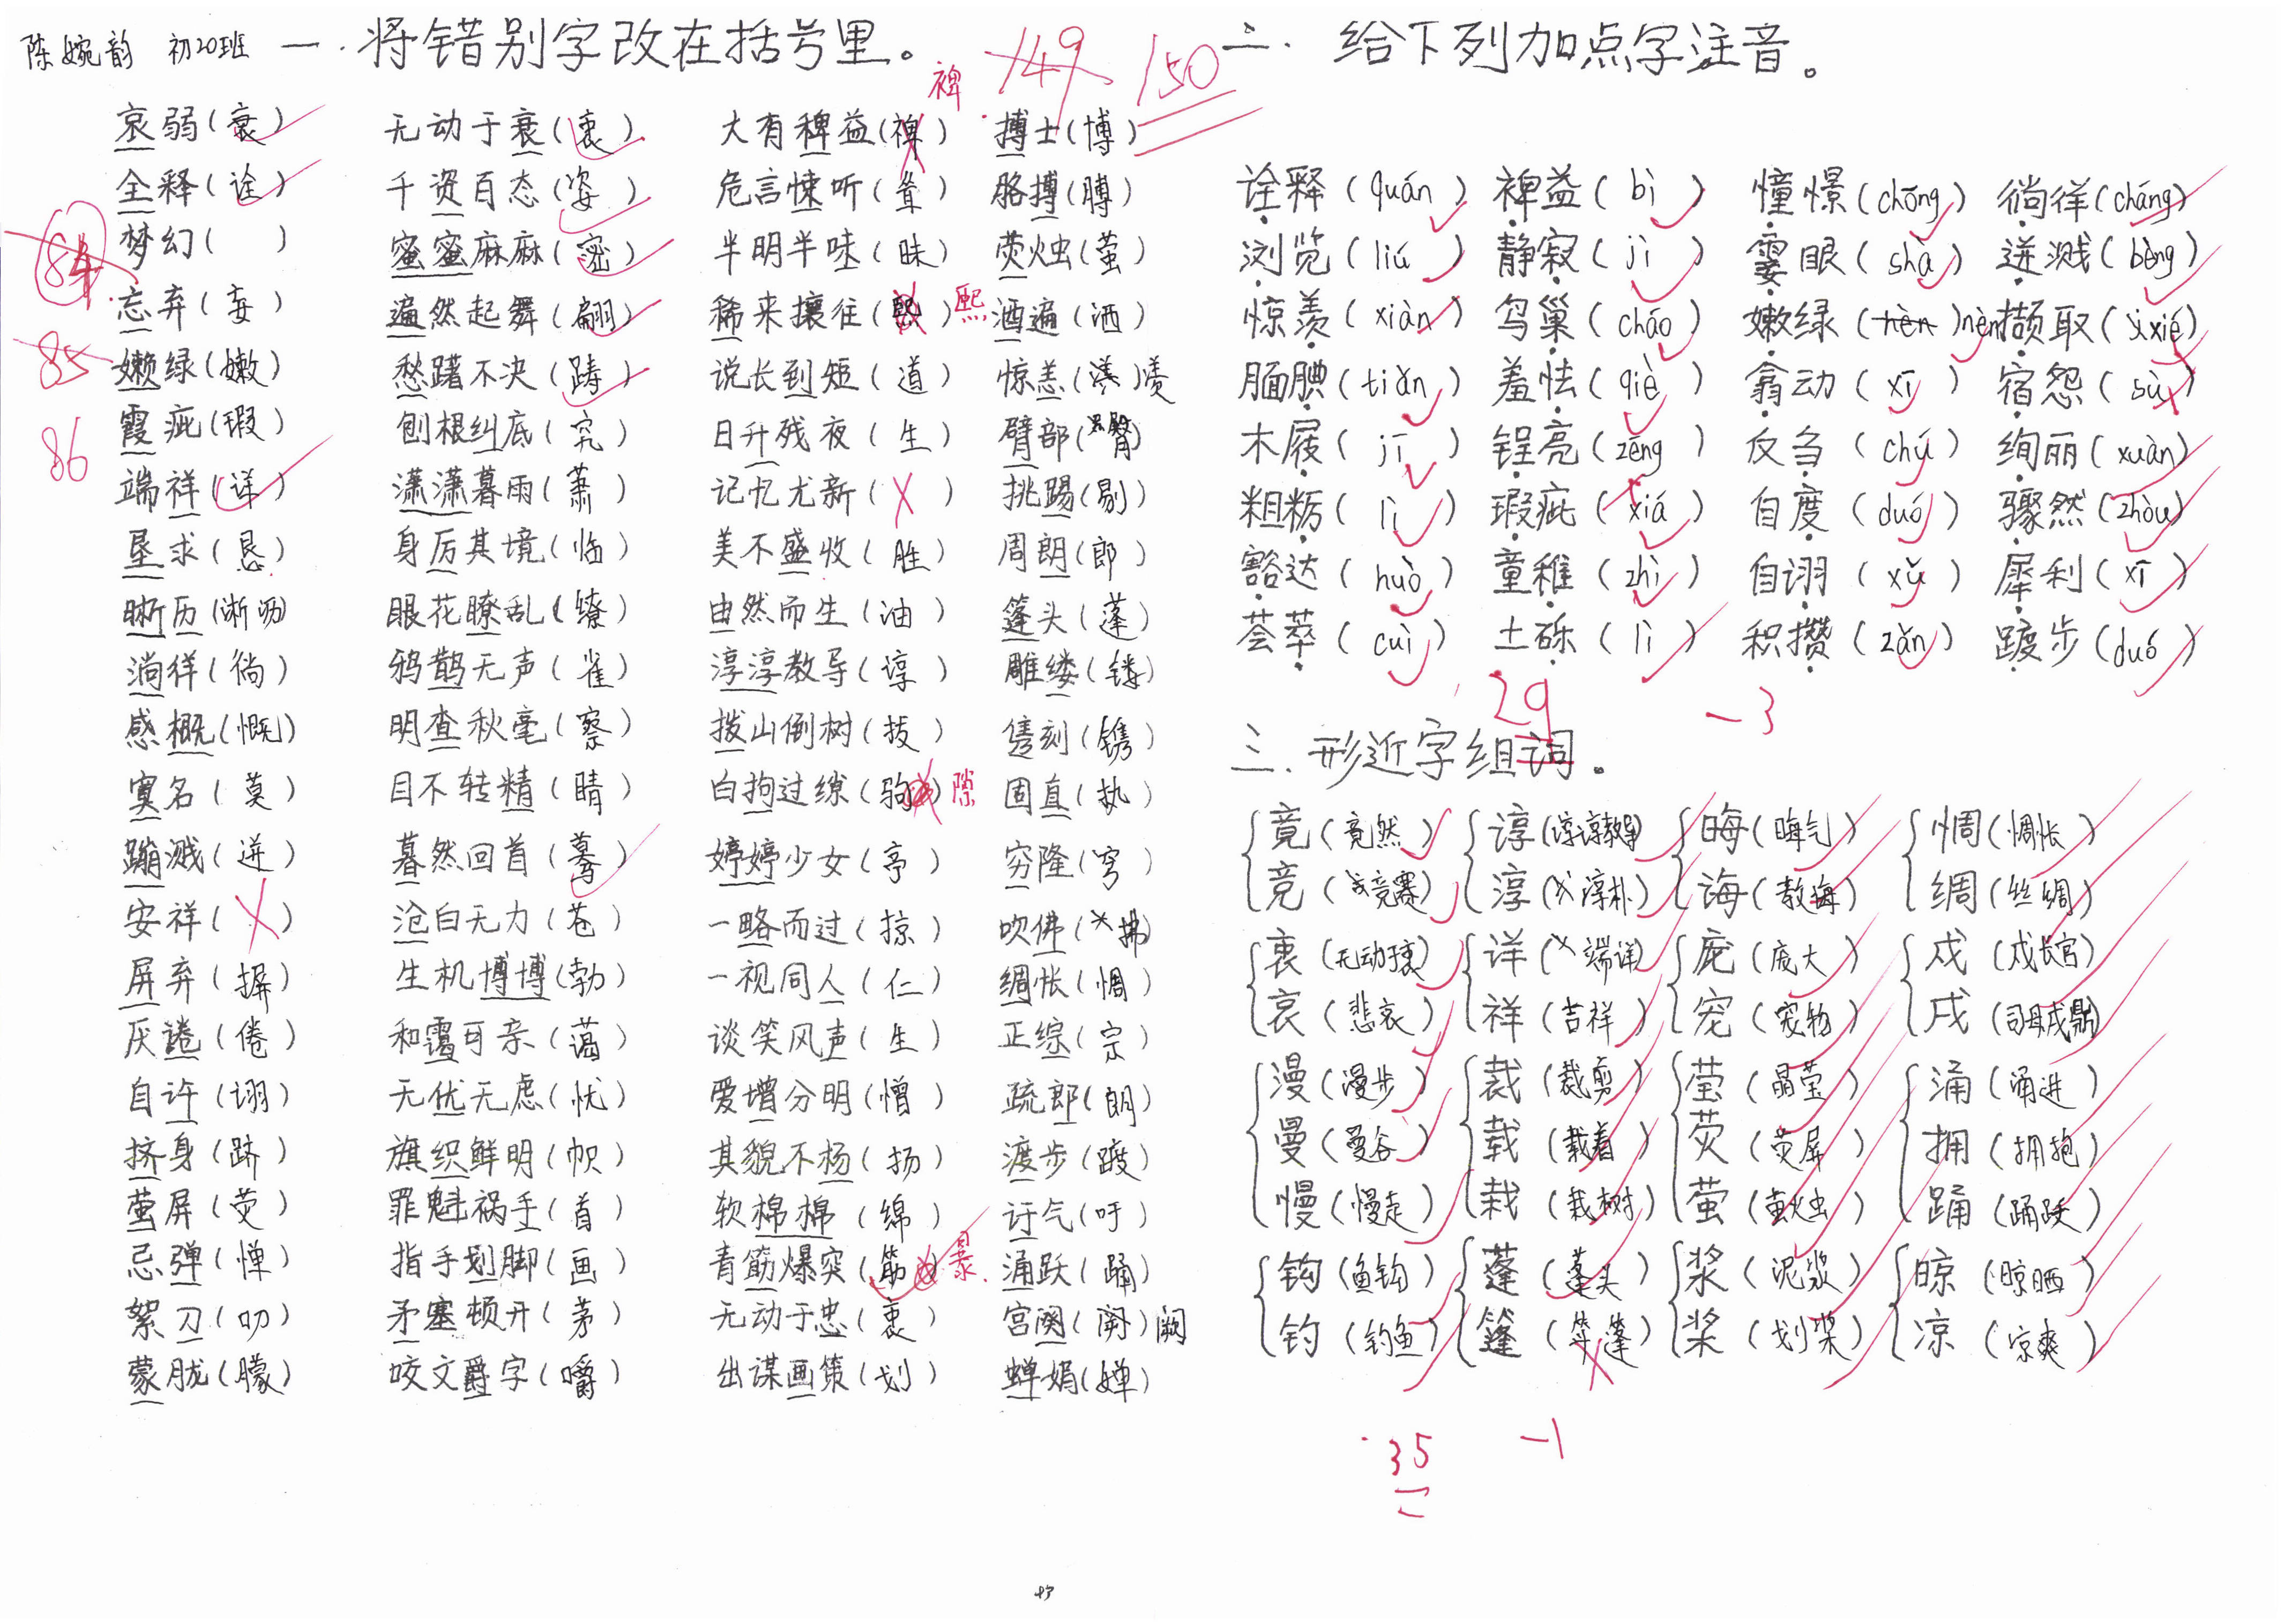 陈婉韵 初20班 一.将错别字改在括号里。 149 150
裨
哀弱(衰) 无动于衰(衷) 大有稗益(禆) 搏士(博)
全释(诠) 千资百态(姿) 危言悚听(耸) 胳搏(膊)
84
梦幻( ) 蜜蜜麻麻(密) 半明半味(昧) 荧火虫(萤)
忘弃(妄) 遍然起舞(翩) 稀来攘往(熙) 熙 酒遍(洒)
85
嫩绿(嫩) 愁躇不决(踌) 说长到短(道) 惊恙(羡)
86
霞疵(瑕) 刨根纠底(究) 日升残夜(生) 臂部(臀)
端祥(详) 潇潇暮雨(萧) 记忆尤新(X) 挑踢(剔)
垦求(恳) 身厉其境(临) 美不盛收(胜) 周朗(郎)
晰历(淅沥) 眼花瞭乱(缭) 由然而生(油) 篷头(蓬)
淌徉(徜) 鸦鹊无声(雀) 淳淳教导(谆) 雕缕(镂)
感概(慨) 明查秋毫(察) 拨山倒树(拔) 隽刻(镌)
寞名(莫) 目不转精(睛) 白拘过缭(驹) 隙 固直(执)
蹦溅(迸) 暮然回首(蓦) 婷婷少女(亭) 穷隆(穹)
安祥(X) 沧白无力(苍) 一略而过(掠) 吹佛(拂)
屏弃(摒) 生机博博(勃) 一视同人(仁) 绸怅(惆)
厌诿(倦) 和霭可亲(蔼) 谈笑风声(生) 正综(宗)
自许(诩) 无优无虑(忧) 爱增分明(憎) 疏郎(朗)
挤身(跻) 旗织鲜明(帜) 其貌不杨(扬) 渡步(踱)
萤屏(荧) 罪魁祸手(首) 软棉棉(绵) 讶气(吁)
忌弹(惮) 指手划脚(画) 青筋爆突(筋) 暴 涌跃(踊)
絮刀(叨) 矛塞顿开(茅) 无动于忠(衷) 宫阂(阙)阙
蒙胧(朦) 咬文爵字(嚼) 出谋画策(划) 蝉娟(婵)
二.给下列加点字注音。
诠释(quán) 裨益(bì) 憧憬(chōng) 徜徉(cháng)
浏览(liú) 静寂(jì) 霎眼(shà) 迸溅(bèng)
惊羡(xiàn) 鸟巢(cháo) 嫩绿(hèn)nèn 撷取(xié)
腼腆(tiǎn) 羞怯(qiè) 翕动(xī) 宿怨(sù)
木屐(jī) 锃亮(zēng) 反刍(chú) 绚丽(xuàn)
粗粝(lì) 瑕疵(xiá) 自度(duó) 骤然(zhòu)
豁达(huò) 童稚(zhì) 自诩(xǔ) 犀利(xī)
荟萃(cuì) 土砾(lì) 积攒(zǎn) 踱步(duó)
29 -3
三.形近字组词。
竟(竟然) 谆(谆谆教导) 晦(晦气) 惆(惆怅)
竞(竞赛) 淳(淳朴) 诲(教诲) 绸(丝绸)
衷(无动于衷) 详(端详) 庞(庞大) 戍(戍长官)
哀(悲哀) 祥(吉祥) 宠(宠物) 戊(司母戊鼎)
漫(漫步) 裁(裁剪) 莹(晶莹) 涌(涌进)
曼(曼谷) 载(载着) 荧(荧屏) 拥(拥抱)
慢(慢走) 栽(栽树) 萤(萤火虫) 踊(踊跃)
钩(鱼钩) 蓬(蓬头) 浆(泥浆) 晾(晾晒)
钓(钓鱼) 篷(篷) 桨(划桨) 凉(凉爽)
35 -1